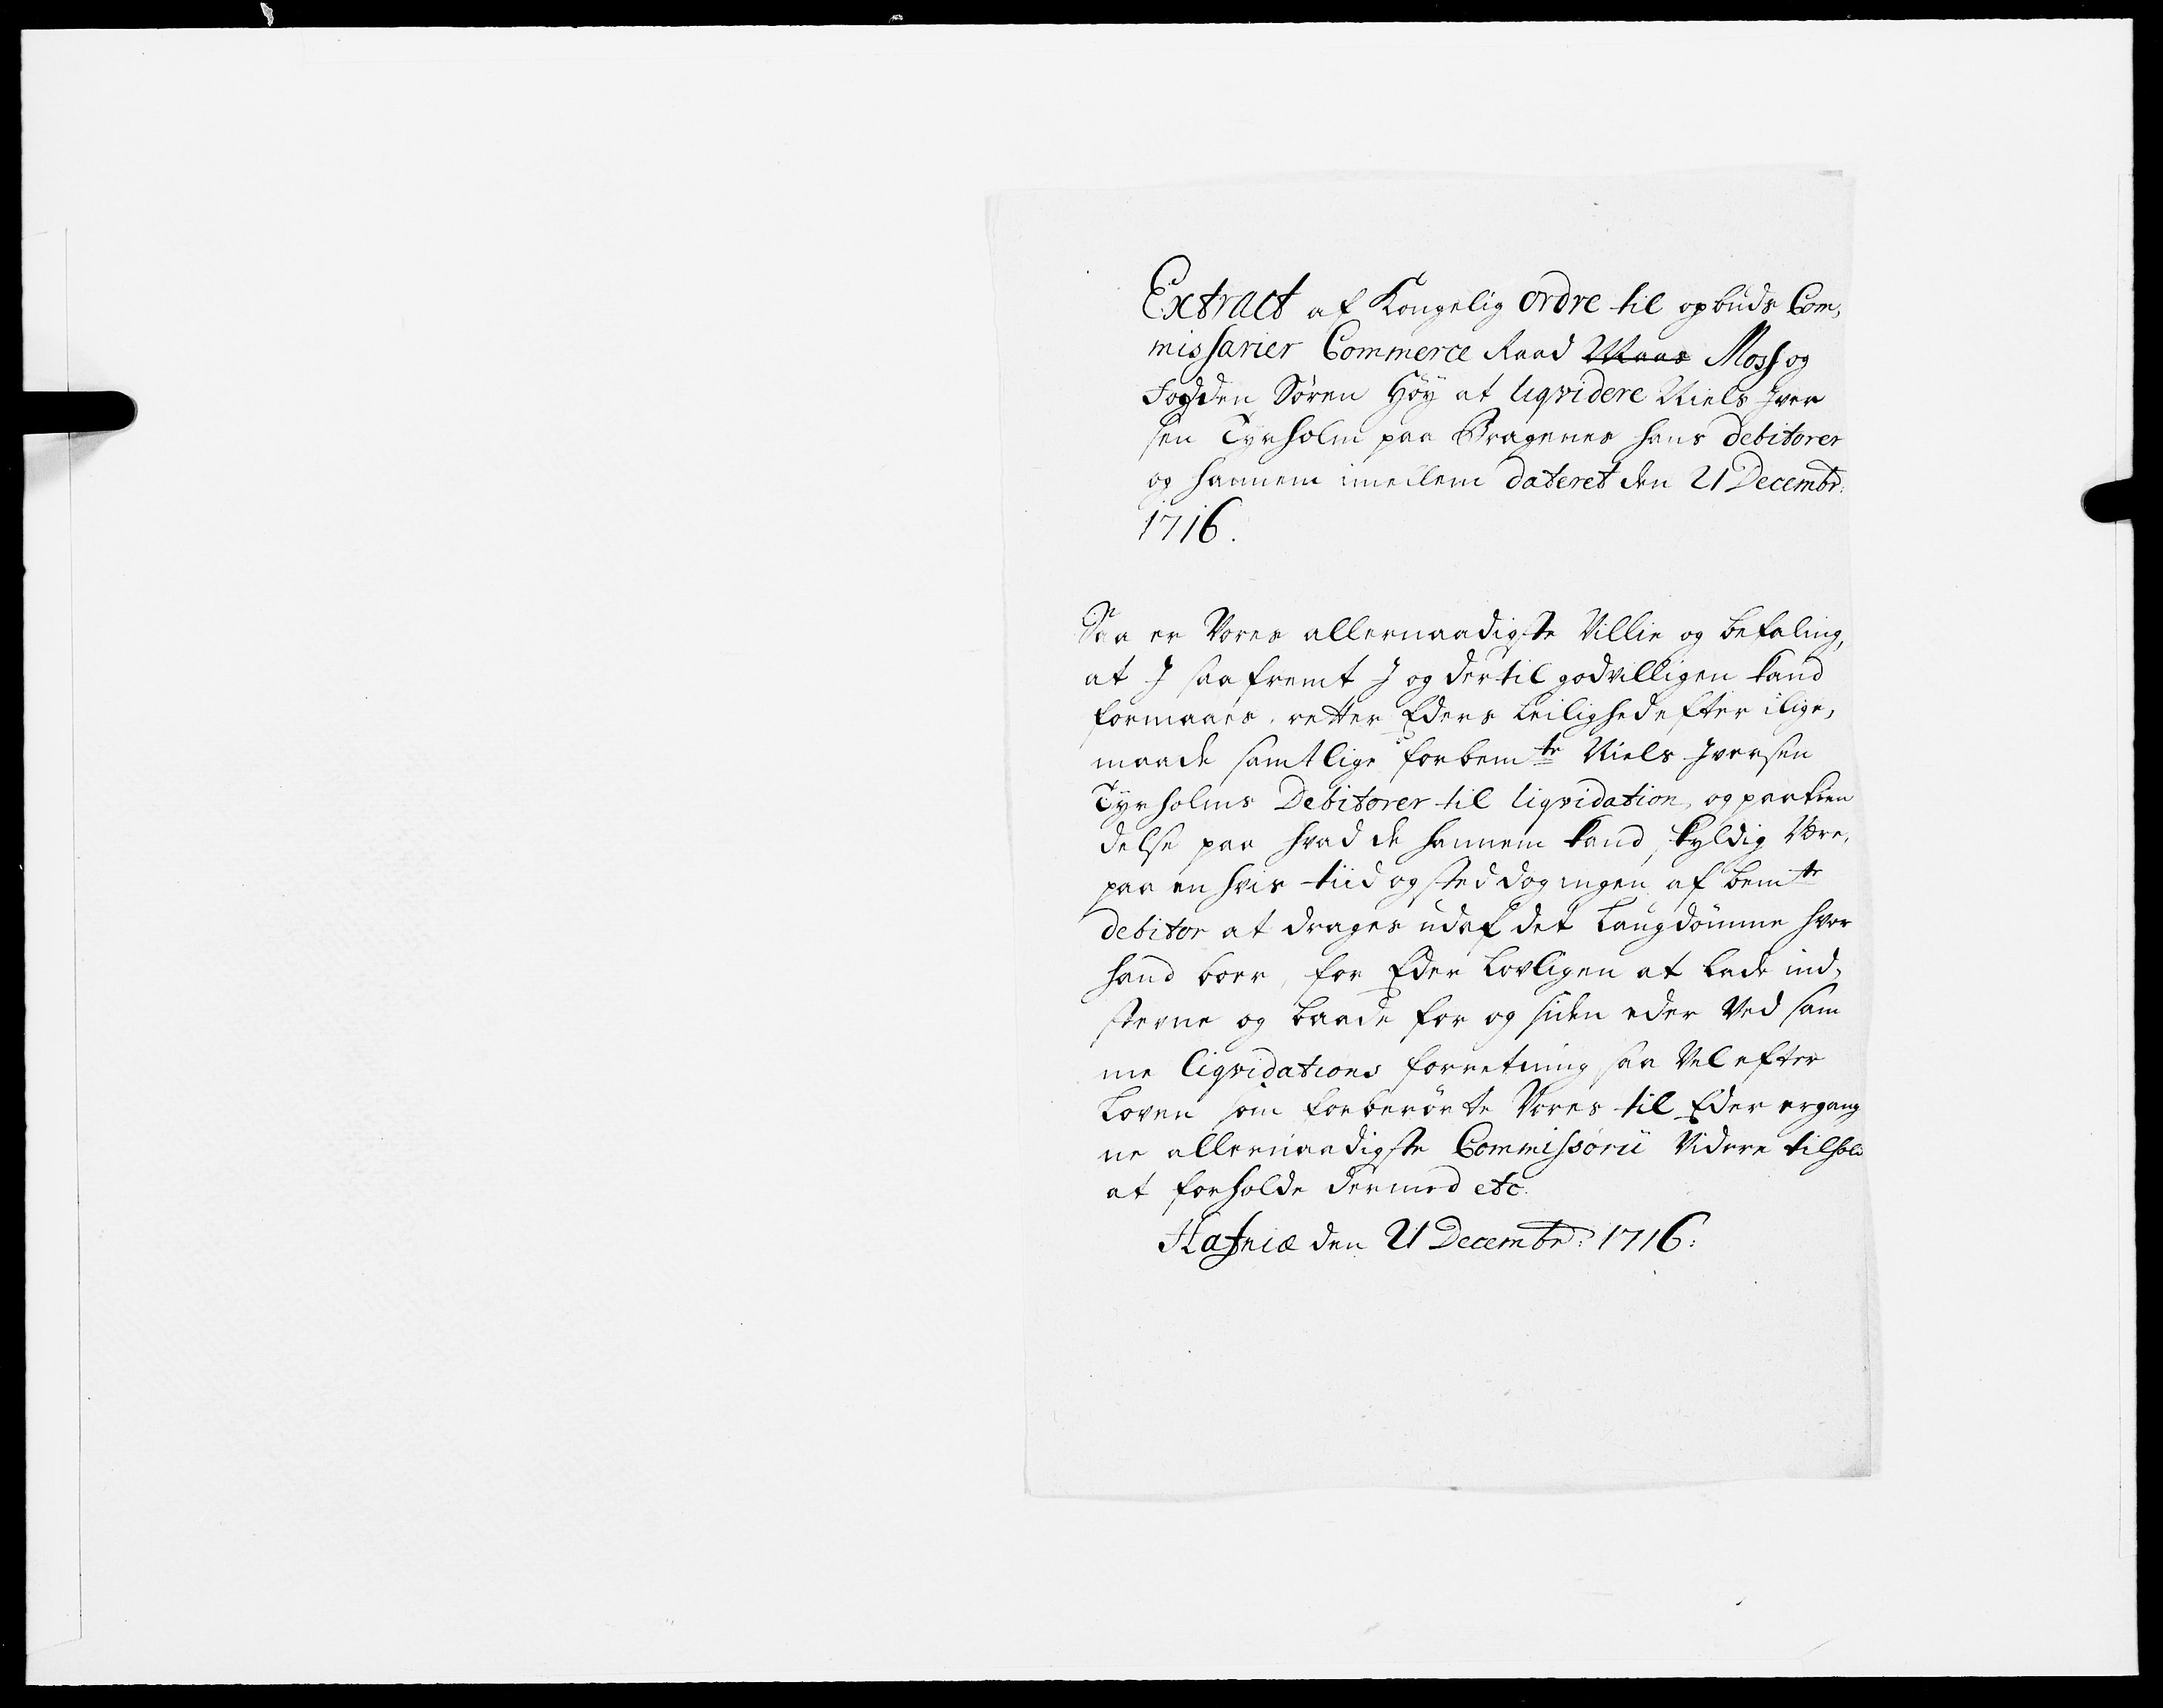 Extract af Kongelig ordre til opbuds Com,
missarier Commerce Raad Maas Moss og
Fogden Søren Høÿ at liqvidere Niels Iver
sen Tyrholm paa Bragenes hans debitorer
og hannem imellem dateret den 21 Decembr:
1716.
Saa er Vores allernaadigste Villie og befaling,
at I saafremt I og dertil godvilligen kand
formaaes, retter Eders Leilighed efter i lige,
maade samtlige forbemte Niels Iversen
Tyrholms Debitorer til liqvidation, og paakien
delse paa hvad de hannem kand skyldig Være,
paa en hvis tiid og sted dog ingen af bemte
debitor at drages udaf det Laugdømme hvor
hand boer, for Eder Lovligen at lade ind,
stevne og baade for og siden eder Ved sam
me liqvidations forretning saa Vel efter
Loven som forberørte Vores til Eder ergang
ne allernaadigste Commissorii Videre tilhold
at forholde dermed etc.
Hafniæ den 21 Decembr: 1716: